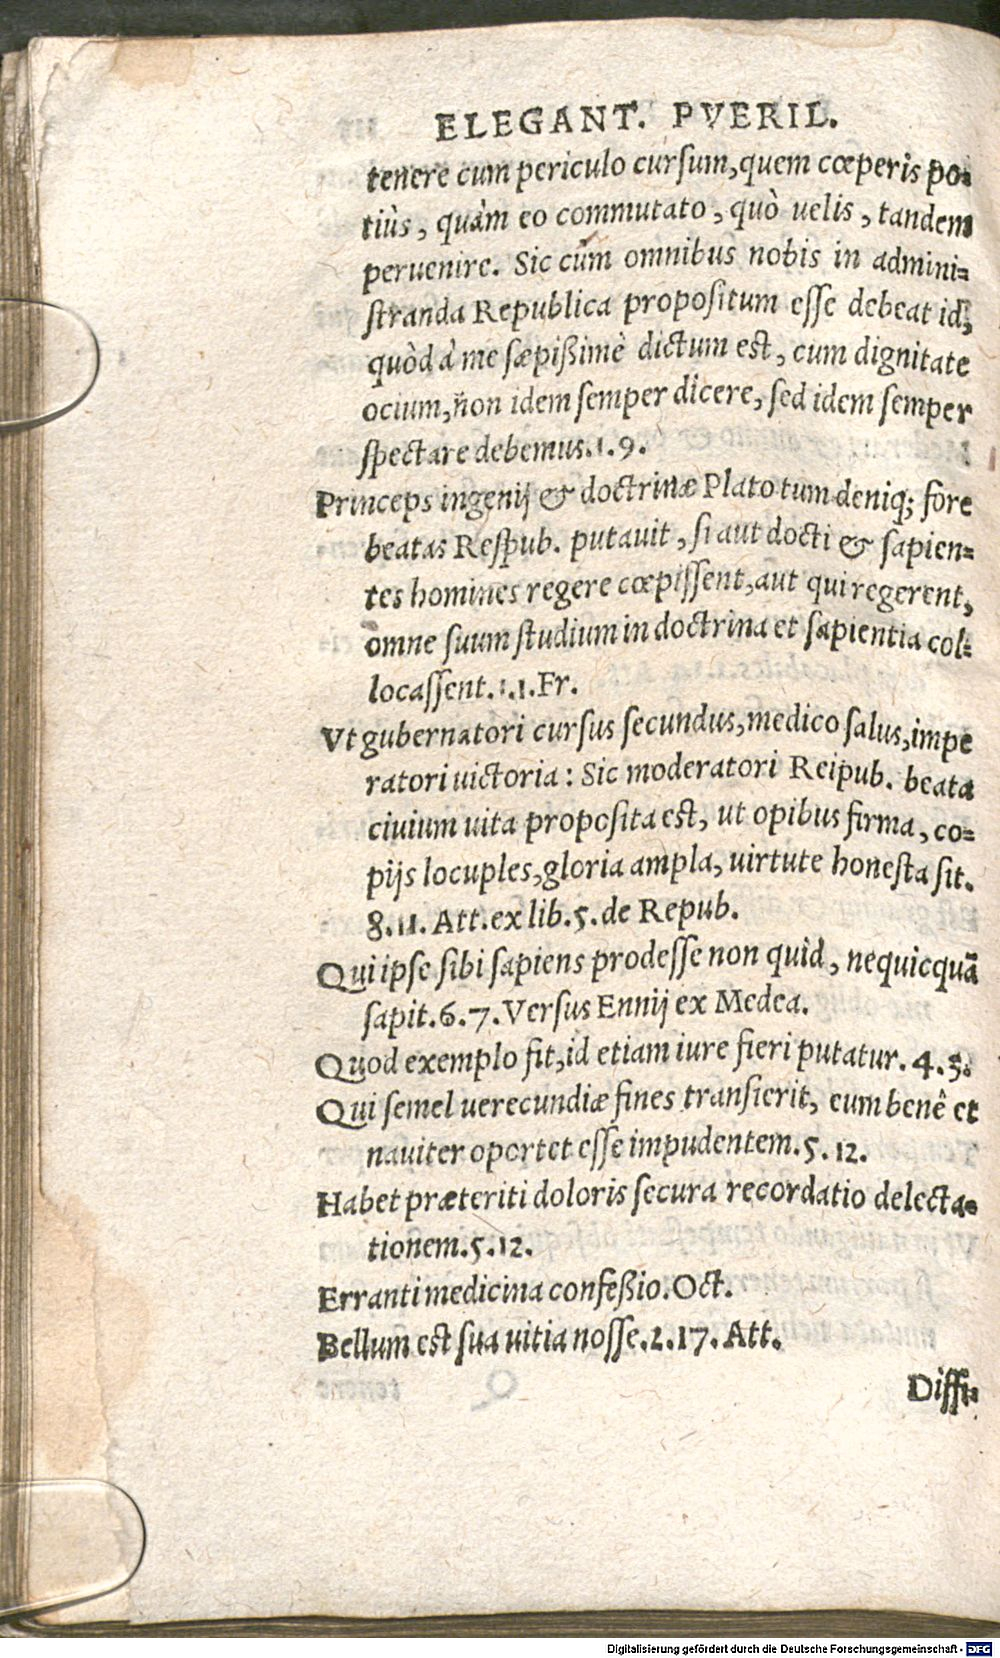 ELEGANT. PVERIL.
tenere cum periculo cursum, quem cœperis po-
tiùs, quàm eo commutato, quò uelis, tandem
peruenire. Sic cùm omnibus nobis in admini-
stranda Republica propositum esse debeat id,
quòd à me sæpißimè dictum est, cum dignitate
ocium, non idem semper dicere, sed idem semper
spectare debemus. 1. 9.
Princeps ingenij & doctrinæ Plato tum deniq; fore
beatas Respub. putauit, si aut docti & sapien-
tes homines regere cœpissent, aut qui regerent,
omne suum studium in doctrina et sapientia col-
locassent. 1. 1. Fr.
Vt gubernatori cursus secundus, medico salus, impe
ratori uictoria: Sic moderatori Reipub. beata
ciuium uita proposita est, ut opibus firma, co-
pijs locuples, gloria ampla, uirtute honesta sit.
8. 11. Att. ex lib. 5. de Repub.
Qui ipse sibi sapiens prodesse non quid, nequicquã
sapit. 6. 7. Versus Ennij ex Medea.
Quod exemplo fit, id etiam iure fieri putatur. 4. 3.
Qui semel uerecundiæ fines transierit, eum benè et
nauiter oportet esse impudentem. 5. 12.
Habet præteriti doloris secura recordatio delecta-
tionem. 5. 12.
Erranti medicina confeßio. Oct.
Bellum est sua uitia nosse. 2. 17. Att.
Diffi-
Digitalisierung gefördert durch die Deutsche Forschungsgemeinschaft - DFG